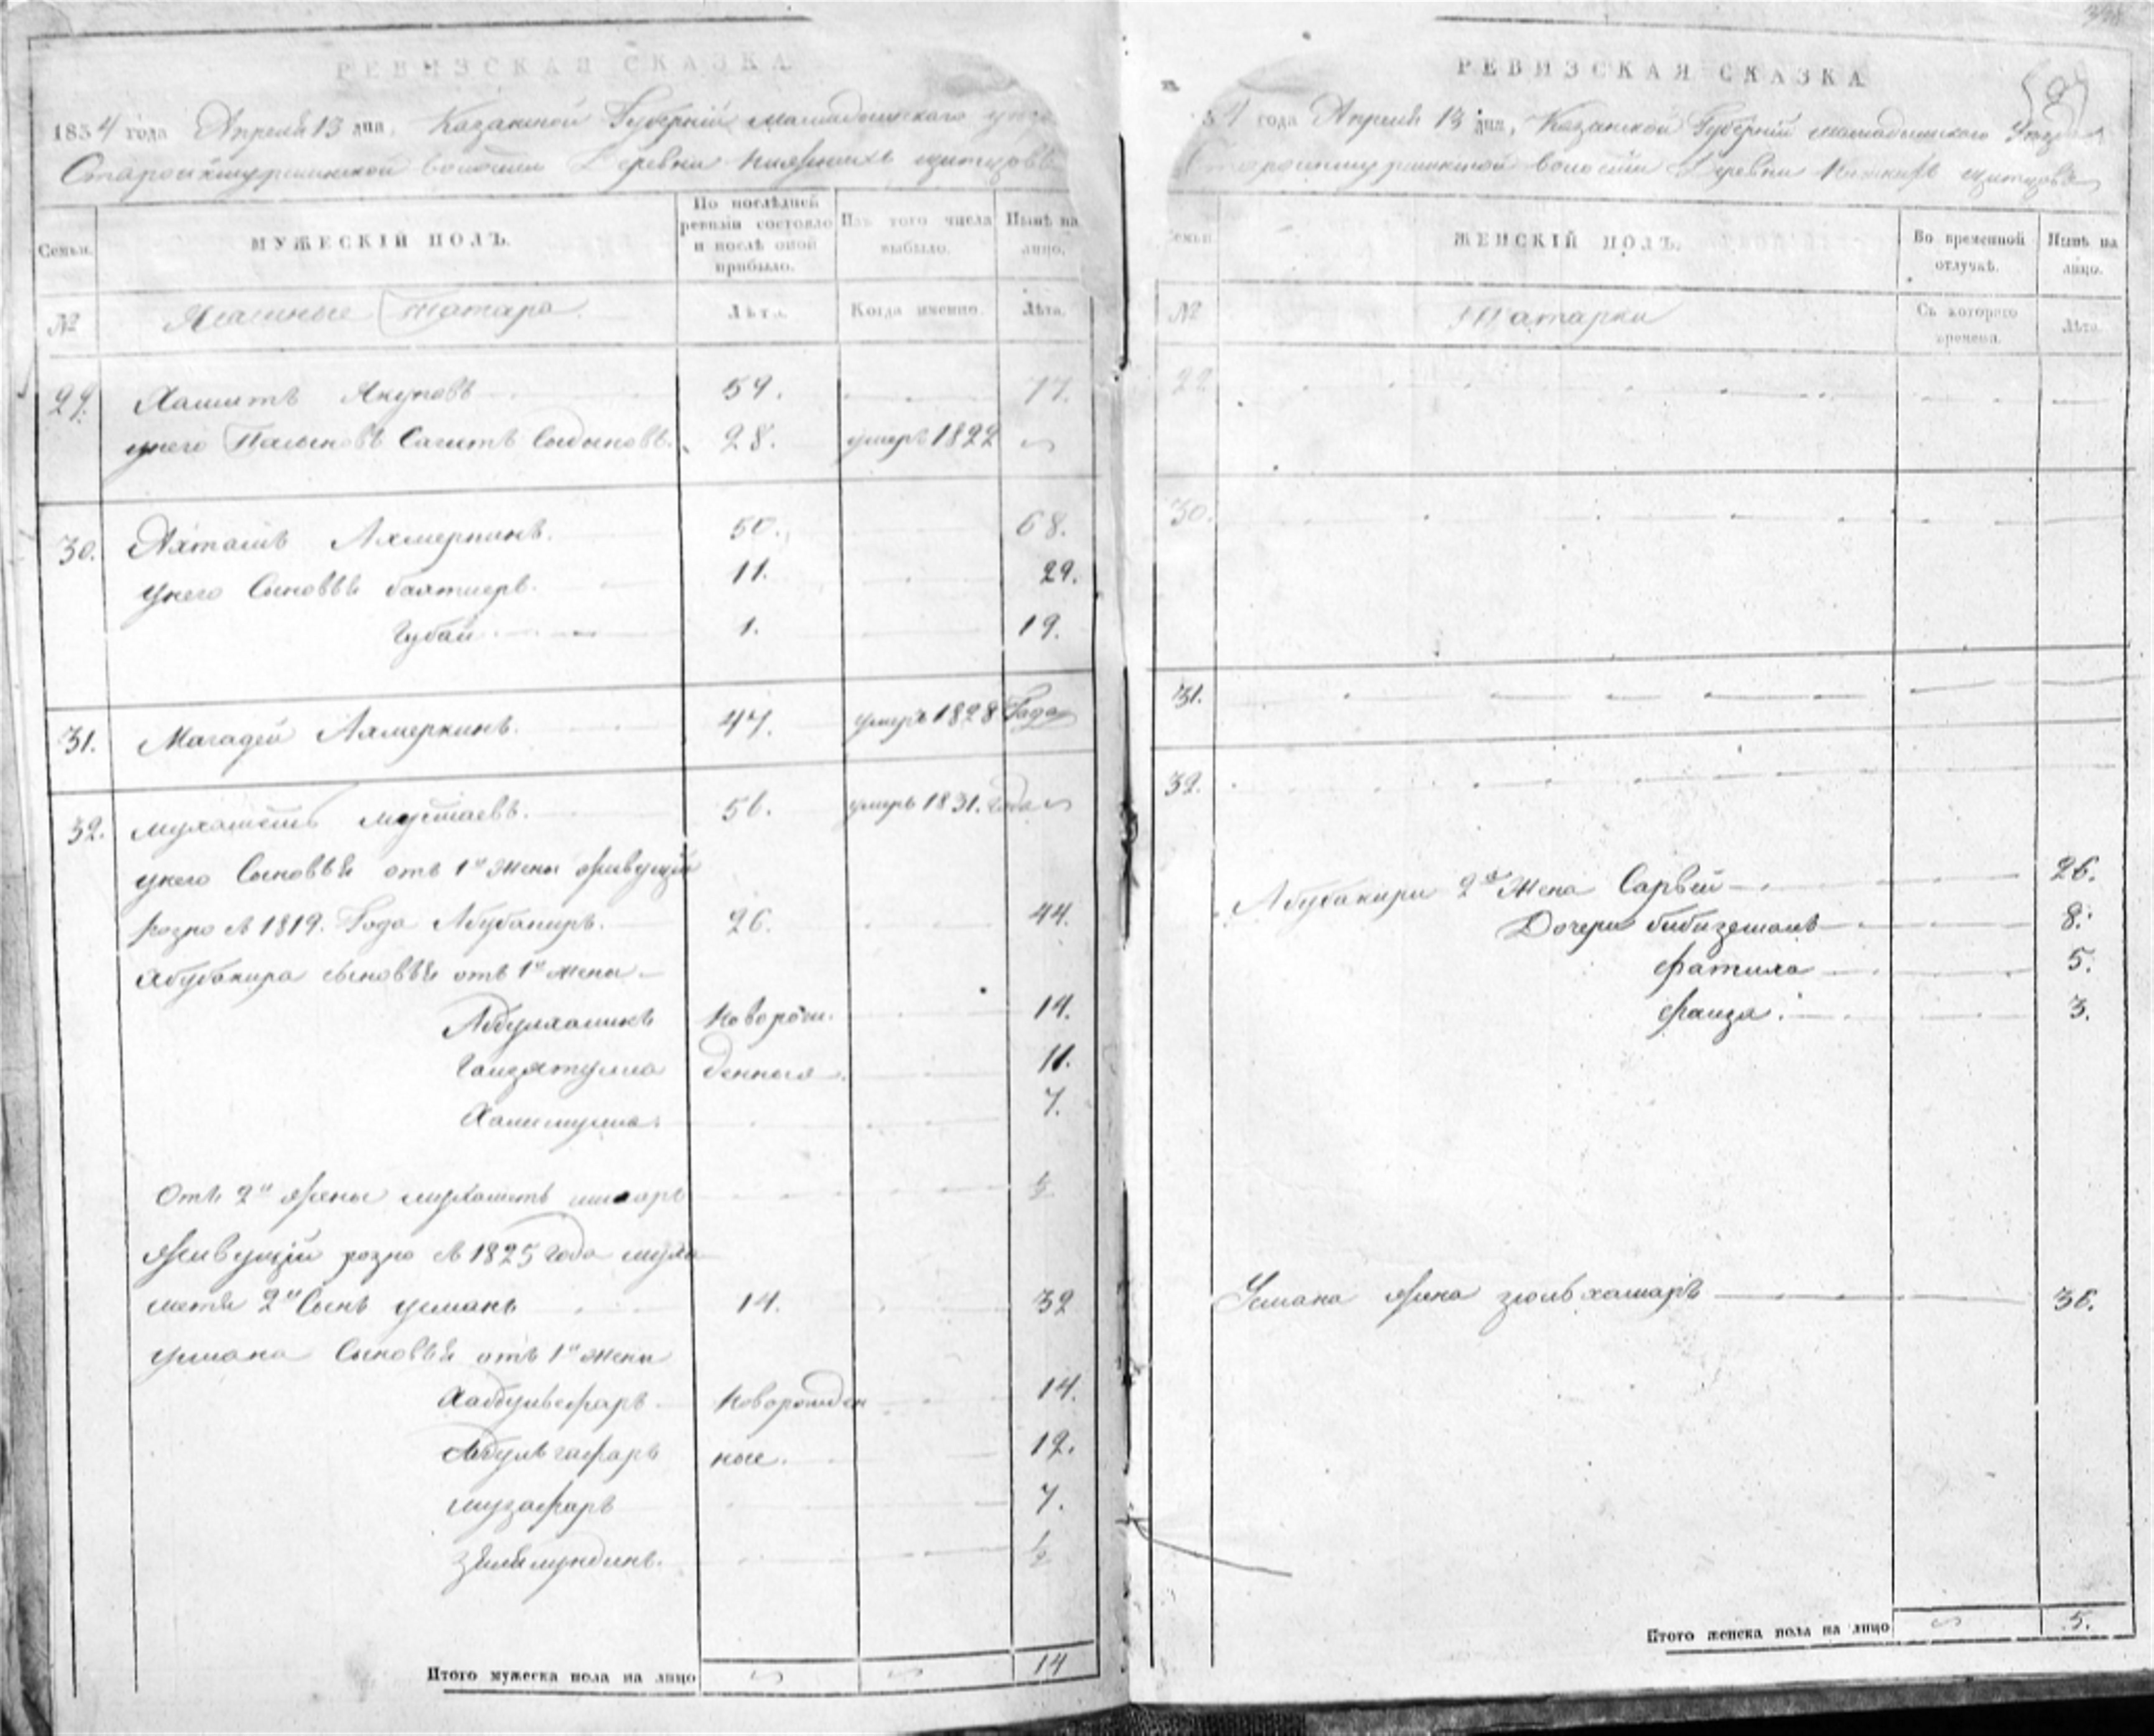 РЕВИЗСКАЯ СКАЗКА
1834 года Апреля 13 дня, Казанской Губернии мамадышского
волости Деревни
Семьи.
МУЖЕСКІЙ ПОЛЪ.
По послѣдней ревизіи состояло и послѣ оной прибыло.
Изъ того числа выбыло.
Нынѣ на лицо.
№
Ясашные Татара.
Лѣта.
Когда именно.
Лѣта.
29. Хамитъ Якуповъ 59. 77.
у него Сагитъ 28. умеръ 1822
30. Ахтамъ Ахмеркинъ. 50. 68.
У него Сыновья бахтиеръ. 11. 29.
Губай 1. 19.
31. Магадей Ахмеркинъ. 47. умеръ 1828 Года
32. мухаметь мустаевъ. 56. умеръ 1831. года
у него Сыновья отъ 1й жены живущій
розно съ 1819. Года Абубакиръ. 26. 44.
Абубакира сыновья отъ 1й жены
Абдулхаликъ Коворож. 14.
Гаизятулла денныя 11.
Халиулла. 7.
Отъ 2й жены мухаметь ½
живущій розно съ 1825 года муха
метя 2й Сынъ усманъ 14. 32
усмана Сыновья отъ 1й жены
Новорожден 14.
Абдулъ гафаръ ные. 12.
музафаръ 7.
½
Итого мужеска пола на лицо 14
РЕВИЗСКАЯ СКАЗКА
34 года Апреля 13 дня, Казанской Губернии мамадышского Уезда
волости Деревни
Семьи.
ЖЕНСКІЙ ПОЛЪ.
Во временной отлучкѣ.
Нынѣ на лицо.
№
Татарки
Съ котораго времени.
Лѣта.
29
30.
31.
32.
Абубакира 2я Жена Сарвей 26.
Дочери бибизямалъ 8.
фатима 5.
фаиза. 3.
Усмана жена зюльхамаръ 36.
Итого женска пола на лицо 5.